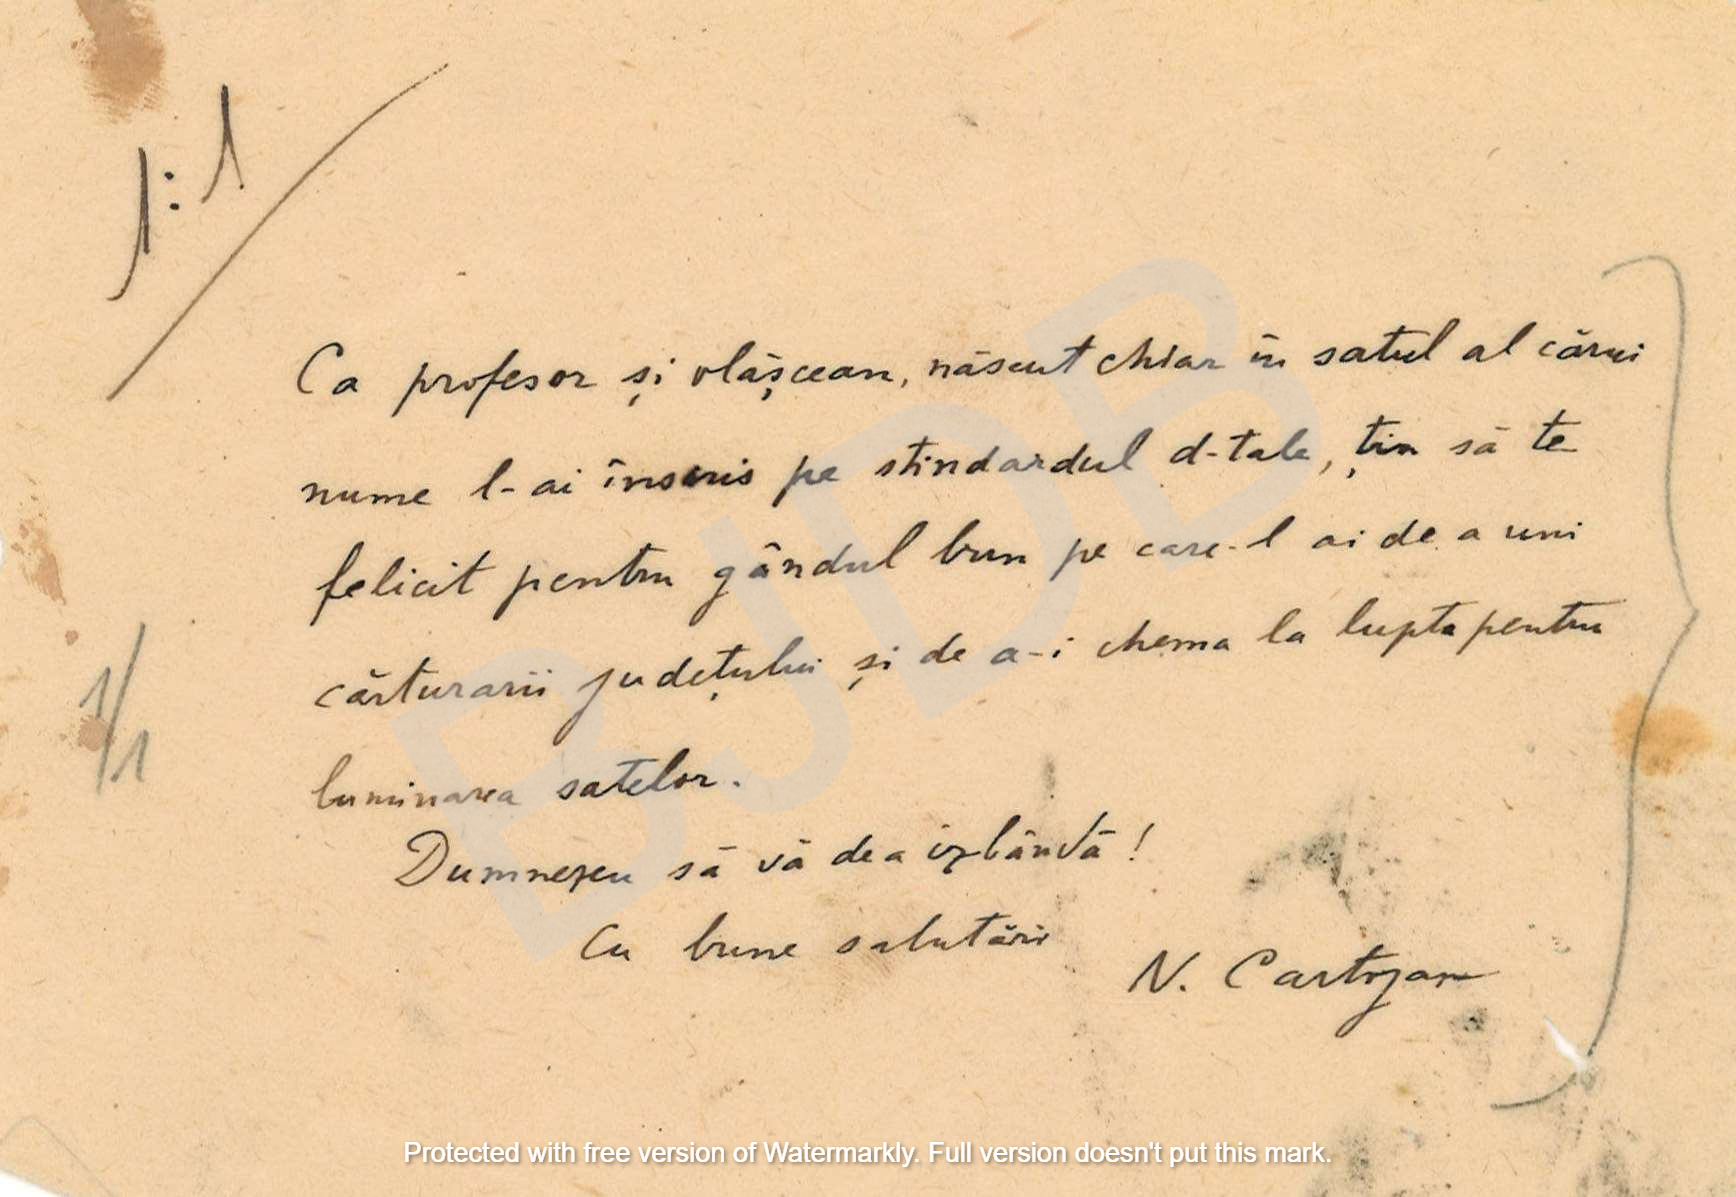 1:1
Ca profesor și vlășcean, născut chiar în satul al cărui
nume l-ai înscris pe stindardul d-tale, țin să te
felicit pentru gândul bun pe care-l ai de a uni
cărturarii județului și de a-i chema la lupta pentru
1/1
luminarea satelor.
Dumnezeu să vă dea izbândă!
Cu bune salutări
N. Cartojan
BJDB
Protected with free version of Watermarkly. Full version doesn't put this mark.